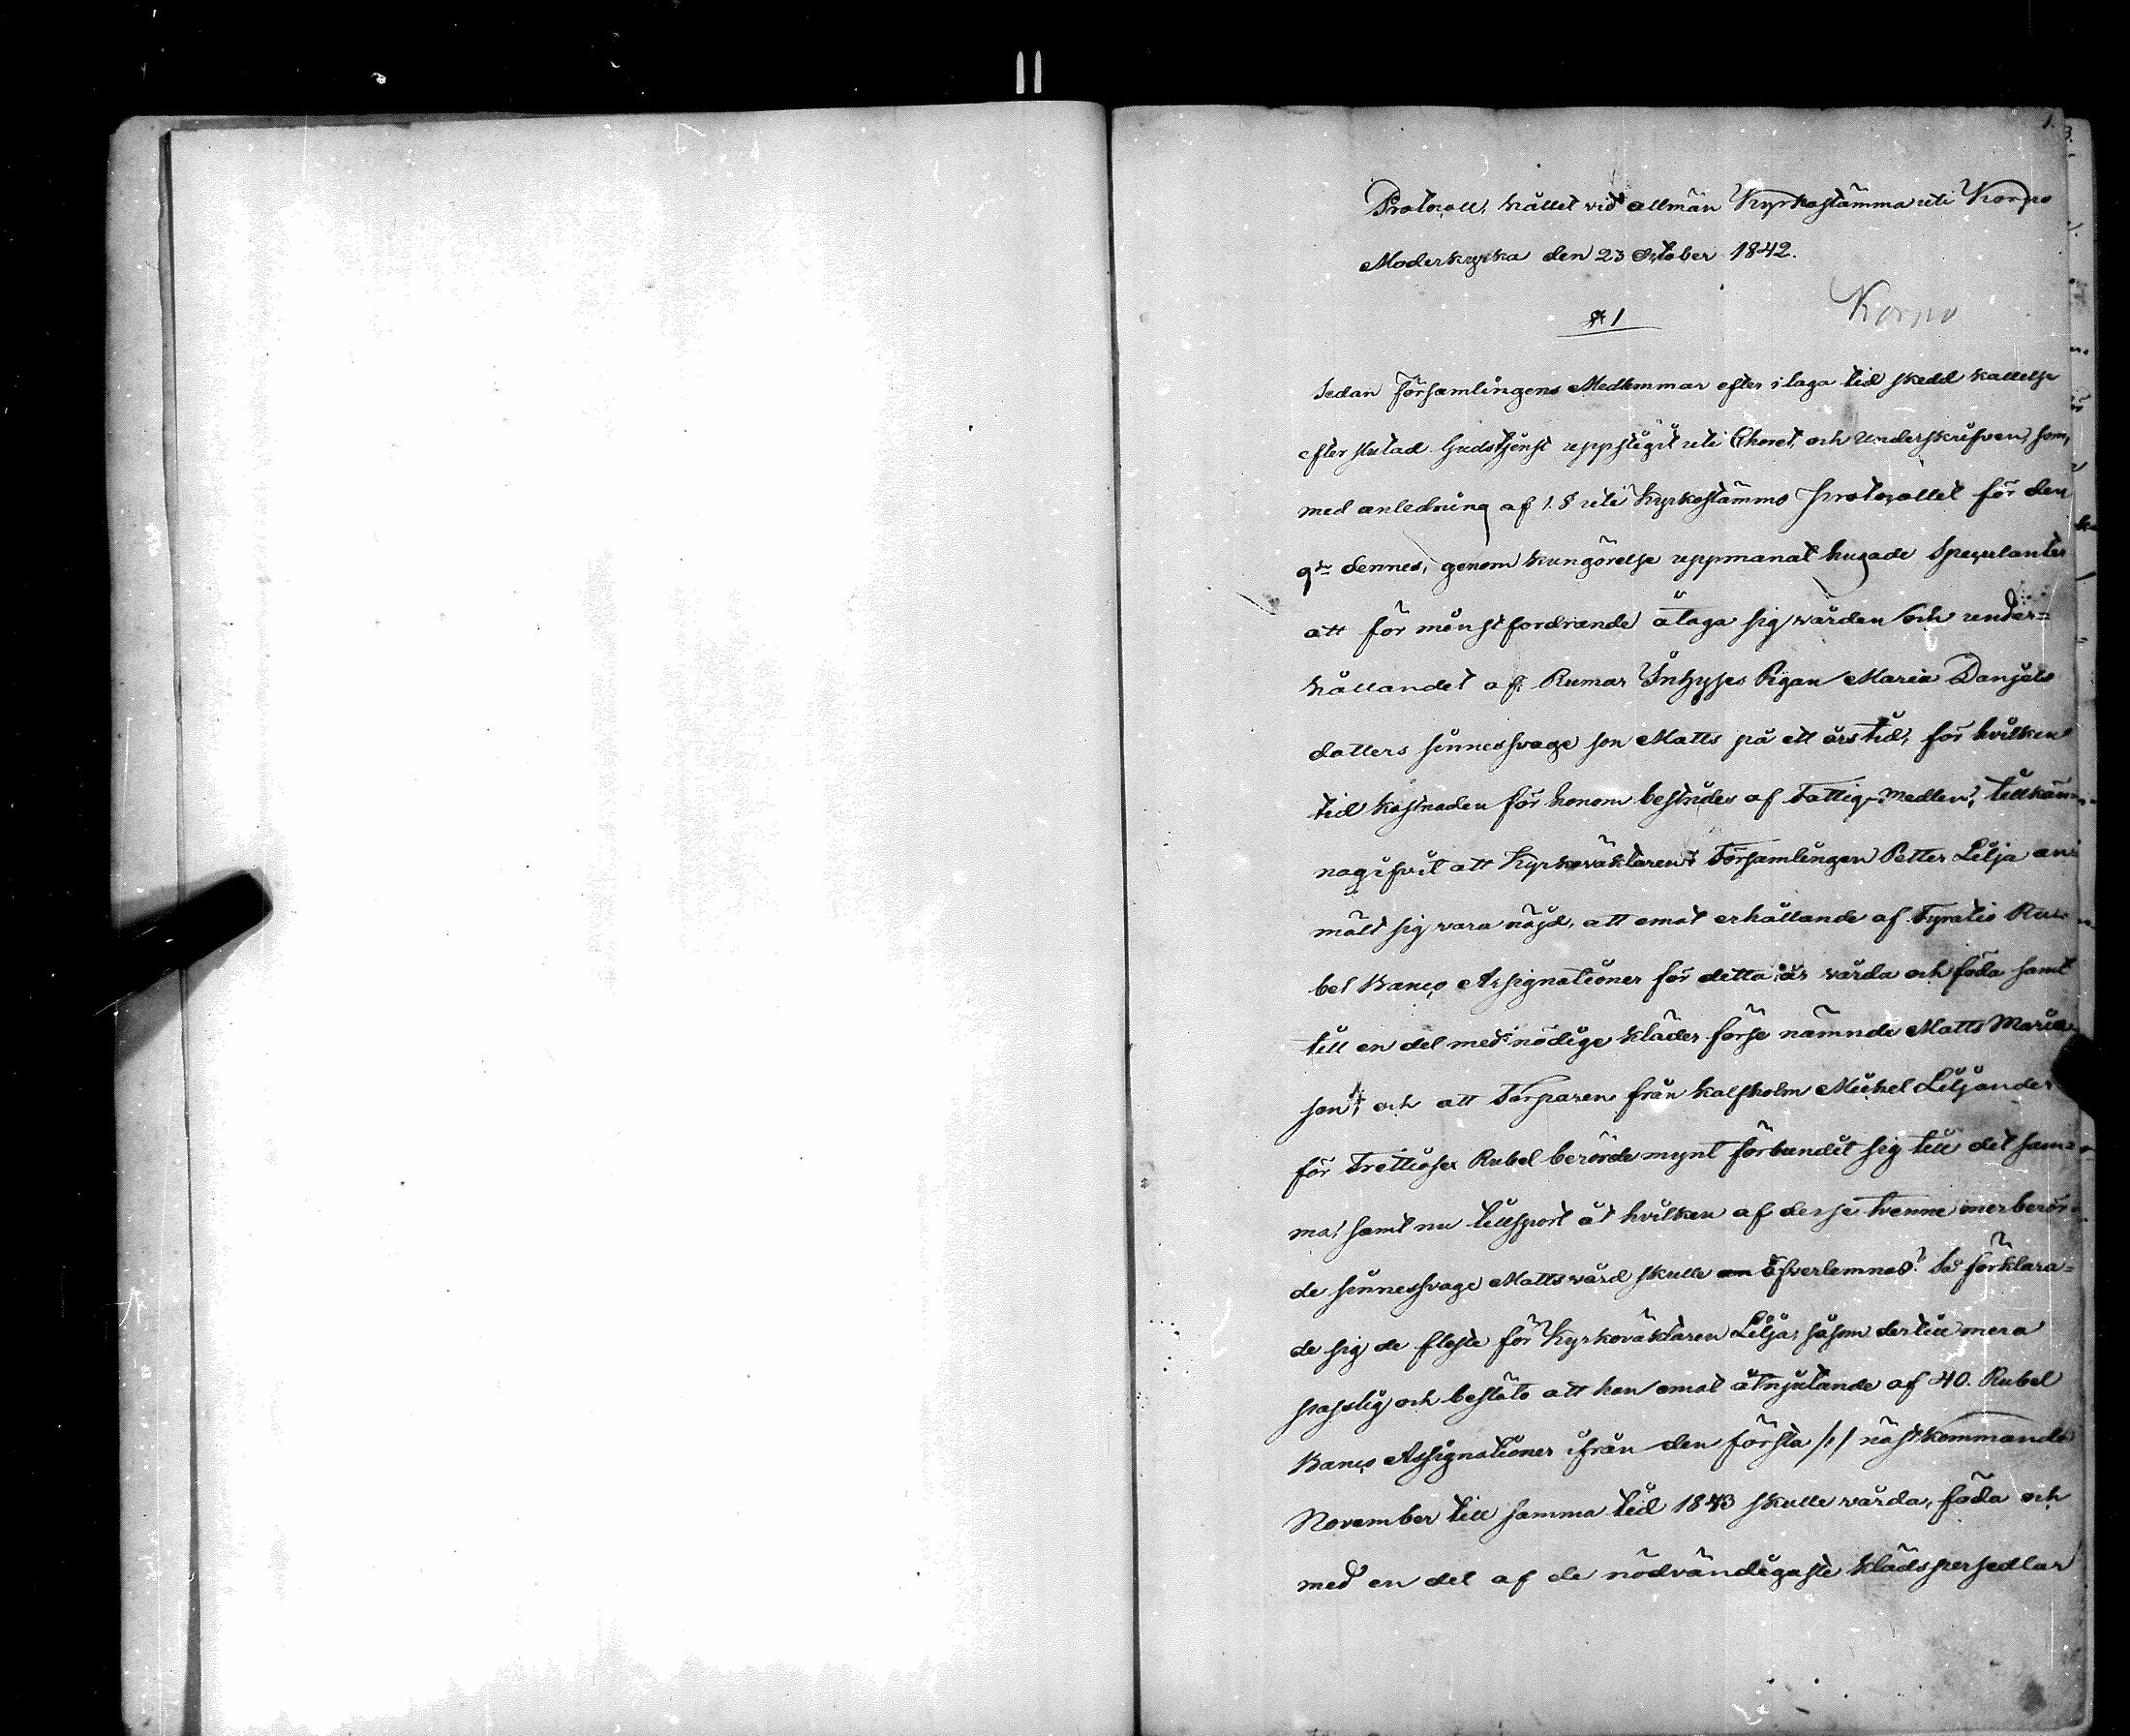 1.
3.
Protocoll, hållet vid allmän Kyrkostämma uti Korpo
Moderkyrka den 23 October 1842.
§ 1
Korpo
Sedan Församlingens Medlemmar efter i laga tid skedd kallelse
efter slutad Gudstjenst uppstigit uti Choret, och Underskrifven, som,
med anledning af 1. § uti Kyrkostämmo Protocollet för den
9de dennes, genom kungörelse uppmanat hugade Speculanter
att för minst fordrande åtaga sig vården och under=
hållandet af Rumar Inhyses Pigan Maria Danjels
dotters sinnessvage son Matts på ett års tid, för hvilken
tid kostnaden för honom bestrides af Fattig-Medlen, tillkän-
nagifvit att Kyrkoväktaren i Församlingen Petter Lilja an-
mält sig vara nöjd, att emot erhållande af Fyratio Ru-
bel Banco Assignationer för detta år vårda och föda samt
till en del med nödige kläder förse nämnde Matts Maria
son, och att Torparen från Kalfholm Mickel Liljander
för Trettiosex Rubel berörde mynt förbundit sig till det sam=
ma, samt nu tillsport åt hvilken af desse tvenne merberör-
de sinnessvage Matts vård skulle öfverlemnas? Så förklara=
de sig de fleste för Kyrkoväktaren Lilja, såsom dertill mera
passlig och beslöts att han emot åtnjutande af 40. Rubel
Banco Assignationer ifrån den första /1/ nästkommande
November till samma tid 1843 skulle vårda, föda och
med en del af de nödvändigaste klädspersedlar